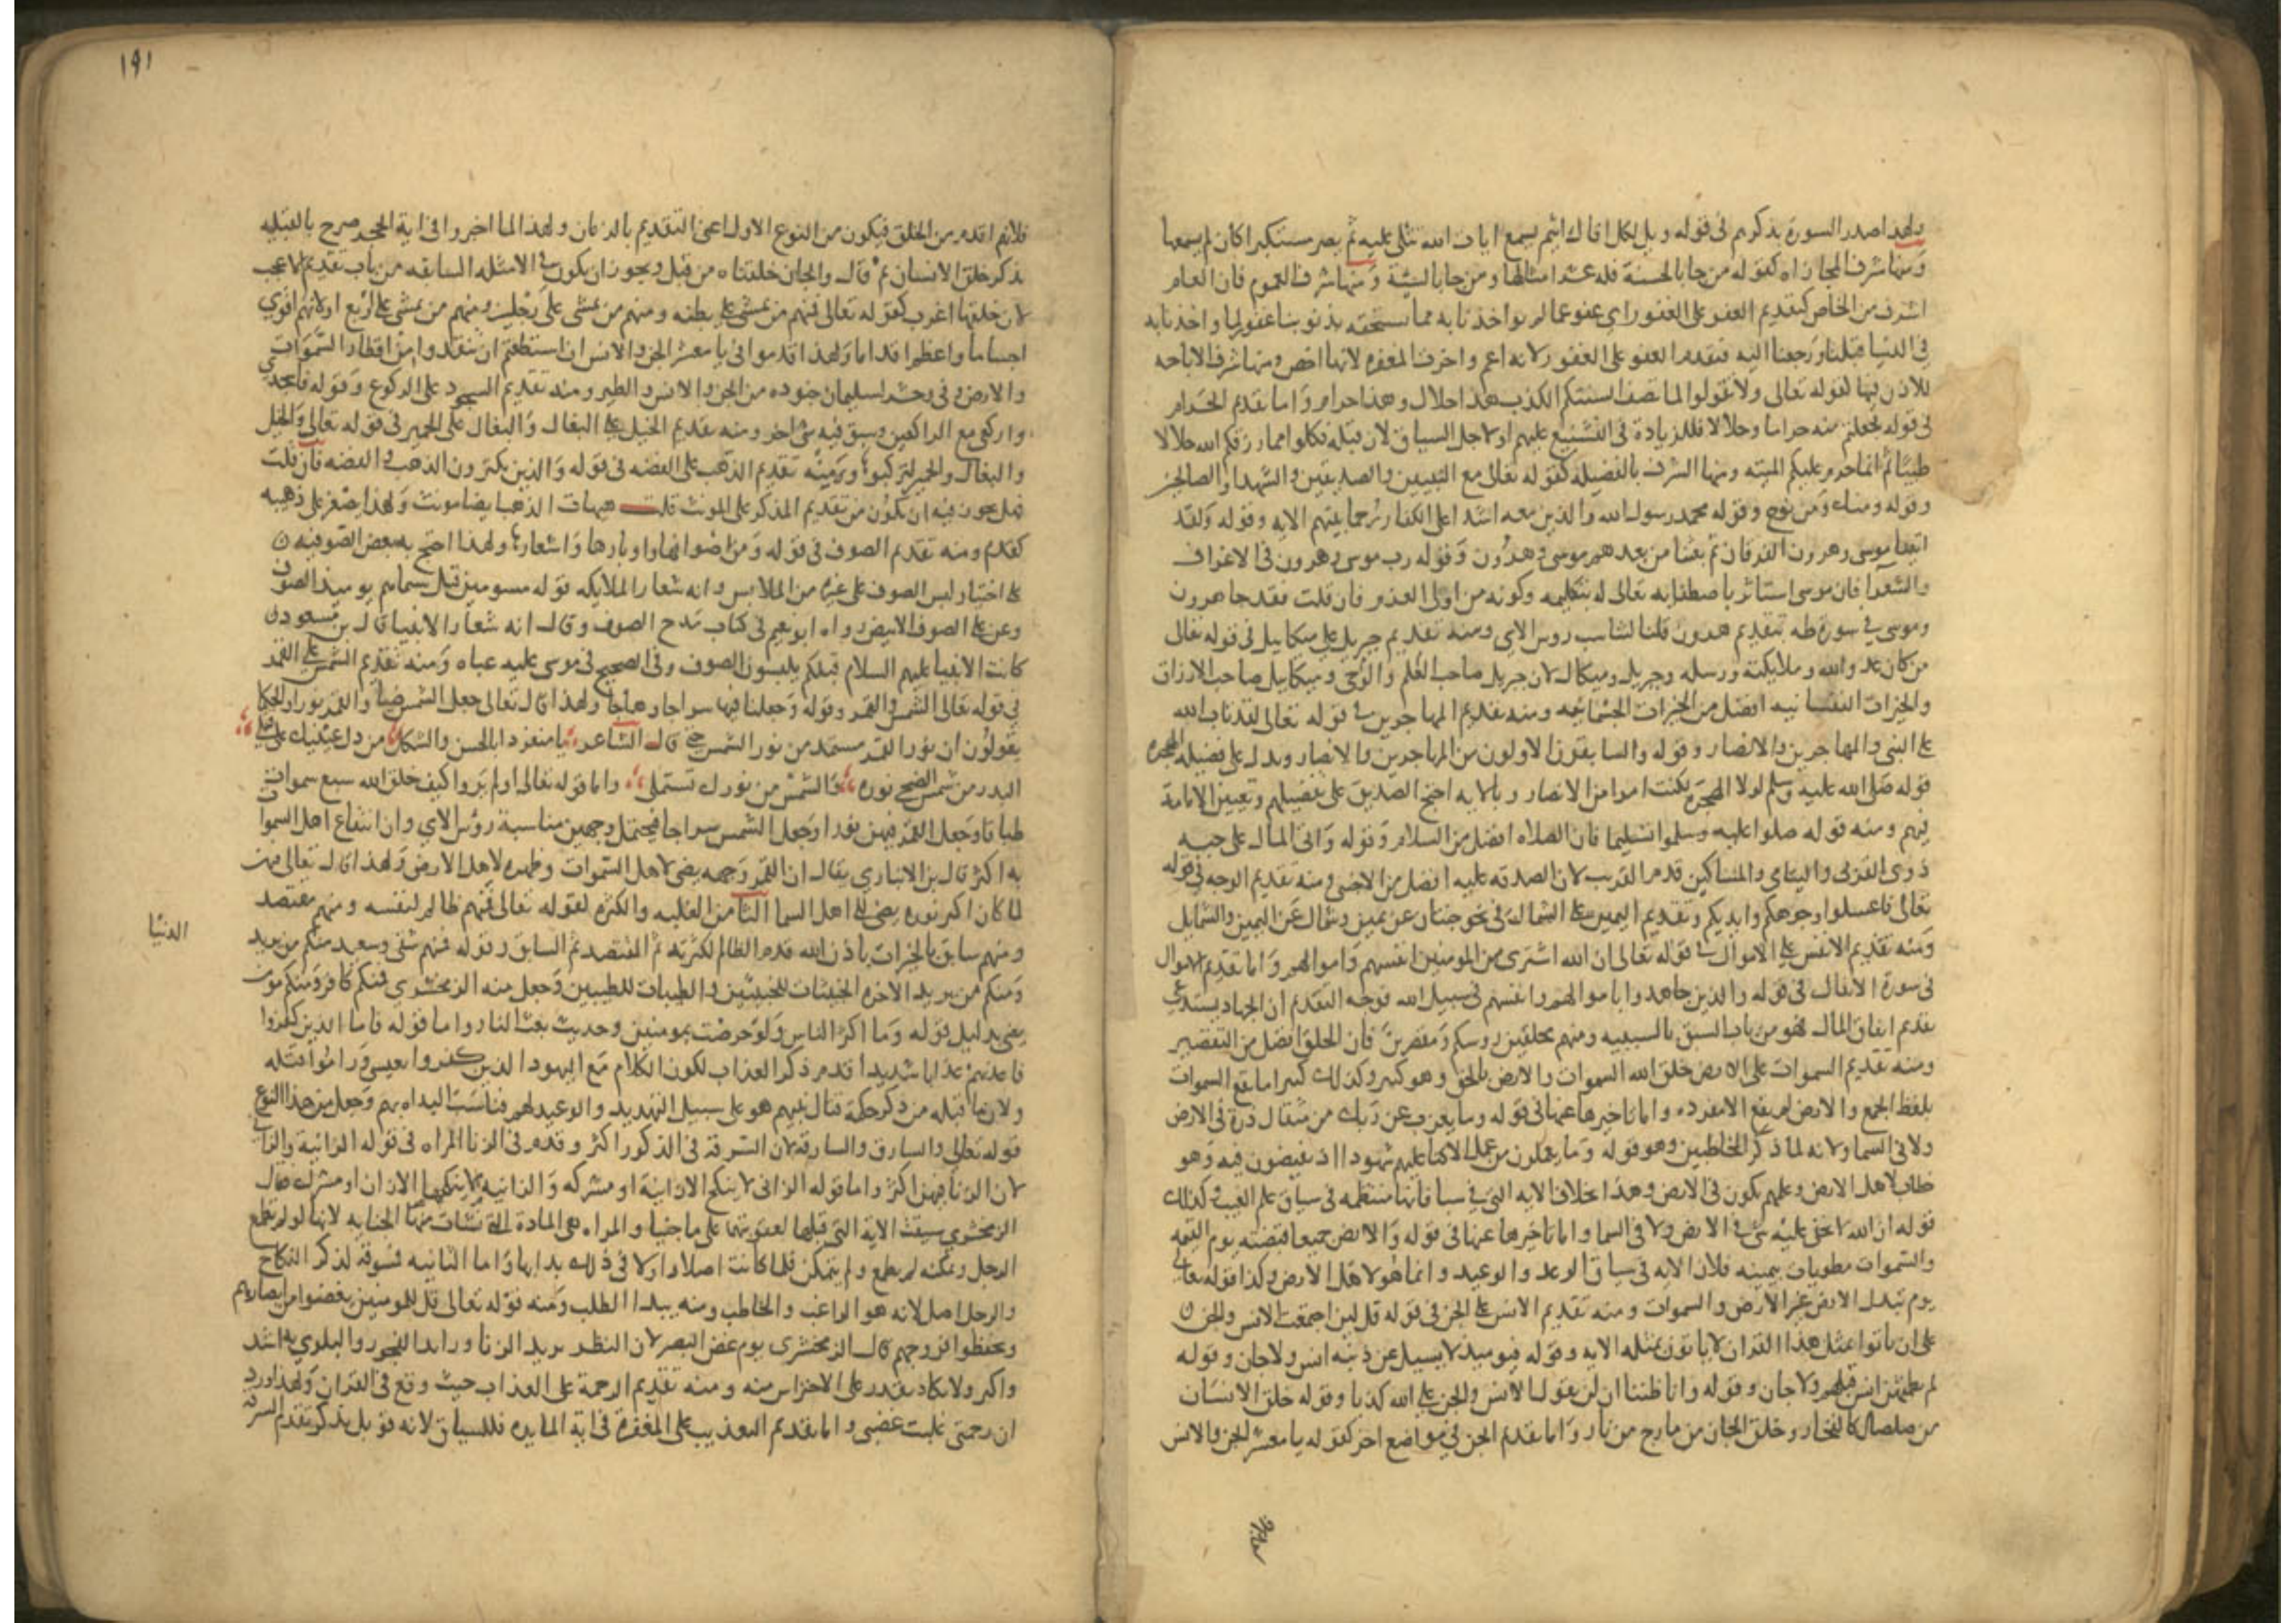 ولهذا صدر السورة بذكرهم في قوله ويل لكل افاك اثيم يسمع ايات الله تتلى عليه ثم يصر مستكبرا كان لم يسمعها
ومنها شرف المجازاه كقوله من جا بالحسنة فله عشر امثالها ومن جا بالسيئة ومنها شرف العموم فان العام
اشرف من الخاص كتقديم العفو على الغفور اي عفو عما لم يواخذنا به مما نستحقه بذنوبنا غفور لما واخذنا به
في الدنيا قبلنا ورجعنا اليه فتقدم العفو على الغفور لانه اعم واخرت المغفره لانها اخص ومنها شرف الاباحه
للاذن بها لقوله تعالى ولا تقولوا لما تصف السنتكم الكذب هذا حلال وهذا حرام واما تقديم الحرام
في قوله فجعلتم منه حراما وحلالا فللزيادة في التشنيع عليهم او لاجل السياق لان قبله فكلوا مما رزقكم الله حلالا
طيبا ثم انما حرم عليكم الميته ومنها الشرف بالفضيله كقوله تعالى مع النبيين والصديقين والشهدا والصالحين
وقوله ومنك ومن نوح وقوله محمد رسول الله والذين معه اشدا على الكفار رحما بينهم الايه وقوله ولقد
اتينا موسى وهرون الفرقان ثم بعثنا من بعدهم موسى وهرون وقوله رب موسى وهرون في الاعراف
والشعرا فان موسى استاثر باصطفايه تعالى له بتكليمه وكونه من اولى العزم فان قلت فقد جا هرون
وموسى في سورة طه بتقديم هرون قلنا لتناسب روس الاي ومنه تقديم جبريل على ميكاييل في قوله تعالى
من كان عدوا لله وملايكته ورسله وجبريل وميكال لان جبريل صاحب العلم والوحي وميكاييل صاحب الارزاق
والخيرات النفسانيه افضل من الخيرات الجسمانيه ومنه تقديم المهاجرين في قوله تعالى لقد تاب الله
على النبي والمهاجرين والانصار وقوله والسابقون الاولون من المهاجرين والانصار ويدل على فضيله الهجره
قوله صلى الله عليه وسلم لولا الهجرة لكنت امرا من الانصار وبالايه احتج الصديق على تفضيلهم وتعيين الامامة
فيهم ومنه قوله صلوا عليه وسلموا تسليما فان الصلاه افضل من السلام وقوله واتى المال على حبه
ذوى القربى واليتامى والمساكين قدم القريب لان الصدقه عليه افضل من الاجنبي ومنه تقديم الوجه في قوله
تعالى فاغسلوا وجوهكم وايديكم وتقديم اليمين على الشمال في نحو جنتان عن يمين وشمال عن اليمين والشمايل
ومنه تقديم الانفس على الاموال في قوله تعالى ان الله اشترى من المومنين انفسهم واموالهم واما تقديم الاموال
في سورة الانفال في قوله والذين جاهدوا باموالهم وانفسهم في سبيل الله فوجه التقديم ان الجهاد يستدعي
تقديم انفاق المال فهو من باب السبق بالسببيه ومنهم محلقين روسكم ومقصرين فان الحلق افضل من التقصير
ومنه تقديم السموات على الارض خلق الله السموات والارض بالحق وهو كثير وكذلك كثيرا ما تقع السموات
بلفظ الجمع والارض لم يقع الا مفرده واما تاخيرها عنها في قوله وما يعزب عن ربك من مثقال ذرة في الارض
ولا في السما ولانه لما ذكر المخاطبين وهو قوله وما يعملون من عمل الا كنا عليهم شهودا اذ تفيضون فيه وهو
خطاب لاهل الارض وعلمهم يكون في الارض وهذا بخلاف الايه التي في سبا فانها منتظمه في سياق علم الغيب وكذلك
قوله ان الله لا يخفى عليه شي في الارض ولا في السما واما تاخيرها عنها في قوله والارض جميعا قبضته يوم القيمه
والسموات مطويات بيمينه فلان الايه في سياق الوعد والوعيد وانما هو لاهل الارض وكذا قوله تعالى
يوم تبدل الارض غير الارض والسموات ومنه تقديم الانس على الجن في قوله قل لين اجتمعت الانس والجن
على ان ياتوا بمثل هذا القران لا ياتون بمثله الايه وقوله فيوميذ لا يسيل عن ذنبه انس ولا جان وقوله
لم يطمثهن انس قبلهم ولا جان وقوله وانا ظننا ان لن تقول الانس والجن على الله كذبا وقوله خلق الانسان
من صلصال كالفخار وخلق الجان من مارج من نار واما تقديم الجن في مواضع اخر كقوله يا معشر الجن والانس
١٩١
فلانهم اقدم من الخلق فيكون من النوع الاول اعنى التقديم بالزمان ولهذا لما اخر في اية الحجر صرح بالقبليه
بذكر خلق الانسان ثم قال والجان خلقناه من قبل ويجوز ان يكون في الامثله السابقه من باب تقديم الاعجب
لان خلقها اغرب كقوله تعالى فمنهم من يمشي على بطنه ومنهم من يمشي على رجلين ومنهم من يمشي على اربع او لانهم اقوى
اجساما واعظم اقداما ولهذا قدموا في يا معشر الجن والانس ان استطعتم ان تنفذوا من اقطار السموات
والارض وفي وحشر لسليمان جنوده من الجن والانس والطير ومنه تقديم السجود على الركوع وقوله فاسجدي
واركعي مع الراكعين وسبق فيه شي اخر ومنه تقديم الخيل على البغال والبغال على الحمير في قوله تعالى والخيل
والبغال والحمير لتركبوا ومنه تقديم الذهب على الفضه في قوله والذين يكنزون الذهب والفضه فان قلت
فهل يجوز فيه ان يكون من تقديم المذكر على المونث قلت هيهات الذهب ايضا مونث ولهذا صغر على ذهيبه
كقديم ومنه تقديم الصوف في قوله ومن اصوافها واوبارها واشعارها ولهذا احتج به بعض الصوفيه
على اختيار لبس الصوف على غيره من الملابس وانه شعار الملايكه قوله مسومين قيل سيماهم يوميذ الصوف
وعن على الصوف الابيض رواه ابو نعيم في كتاب مدح الصوف وقال انه شعار الانبيا قال بن مسعود
كانت الانبيا عليهم السلام قبلكم يلبسون الصوف وفي الصحيح في موسى عليه عباه ومنه تقديم الشمس على القمر
في قوله تعالى الشمس والقمر وقوله وجعلنا فيها سراجا وهاجا ولهذا قال تعالى جعل الشمس ضيا والقمر نورا والحكما
يقولون ان نور القمر مستمد من نور الشمس قال الشاعر يا منفردا بالحسن والشكل من دل عينيك على قتلي
البدر من شمس الضحى نوره والشمس من نورك تستملي واما قوله تعالى اولم يروا كيف خلق الله سبع سموات
طباقا وجعل القمر فيهن نورا وجعل الشمس سراجا فيحتمل وجهين مناسبة روس الاي وان انتفاع اهل السموات
به اكثر قال بن الانباري يقال ان القمر وجهه يضي لاهل السموات وظهره لاهل الارض ولهذا قال تعالى فيهن
لما كان اكثر نوره يضي الى اهل السما الثامن الغلبه والكثره لقوله تعالى فمنهم ظالم لنفسه ومنهم مقتصد
ومنهم سابق بالخيرات باذن الله قدم الظالم لكثرته ثم المقتصد ثم السابق وقوله فمنهم شقي وسعيد منكم من يريد
الدنيا
ومنكم من يريد الاخره الخبيثات للخبيثين والطيبات للطيبين وجعل منه الزمخشري فمنكم كافر ومنكم مومن
يعني بدليل قوله وما اكثر الناس ولو حرصت بمومنين وحديث بعث النار واما قوله فاما الذين كفروا
فاعذبهم عذابا شديدا قدم ذكر العذاب لكون الكلام مع اليهود الذين كفروا بعيسى وراموا قتله
قوله تعالى والسارق والسارقة لان السرقة في الذكور اكثر وقدم في الزنا المراه في قوله الزانية والزاني
لان الزنا فيهن اكثر واما قوله الزاني لا ينكح الا زانية او مشركه والزانيه لا ينكحها الا زان او مشرك فقال
الزمخشري سيقت الاية التي قبلها لعقوبتهما على ما جنيا والمراه هي المادة التي نشات منها الجنايه لانها لو لم تطمع
الرجل وتمكنه لم يطمع ولم يتمكن فلما كانت اصلا واولا في ذلك بدا بها واما الثانيه فمسوقة لذكر النكاح
والرجل اصل لانه هو الراغب والخاطب ومنه يبدا الطلب ومنه قوله تعالى قل للمومنين يغضوا من ابصارهم
ويحفظوا فروجهم قال الزمخشري غض البصر لان النظر بريد الزنا ورايد الفجور والبلوى به اشد
واكبر ولا يكاد يقدر على الاحتراس منه ومنه تقديم الرحمة على العذاب حيث وقع في القران ولهذا ورد
ان رحمتي غلبت غضبي واما تقديم التعذيب على المغفرة في اية المايده فللسياق لانه قوبل بذكر تقدم السرقه